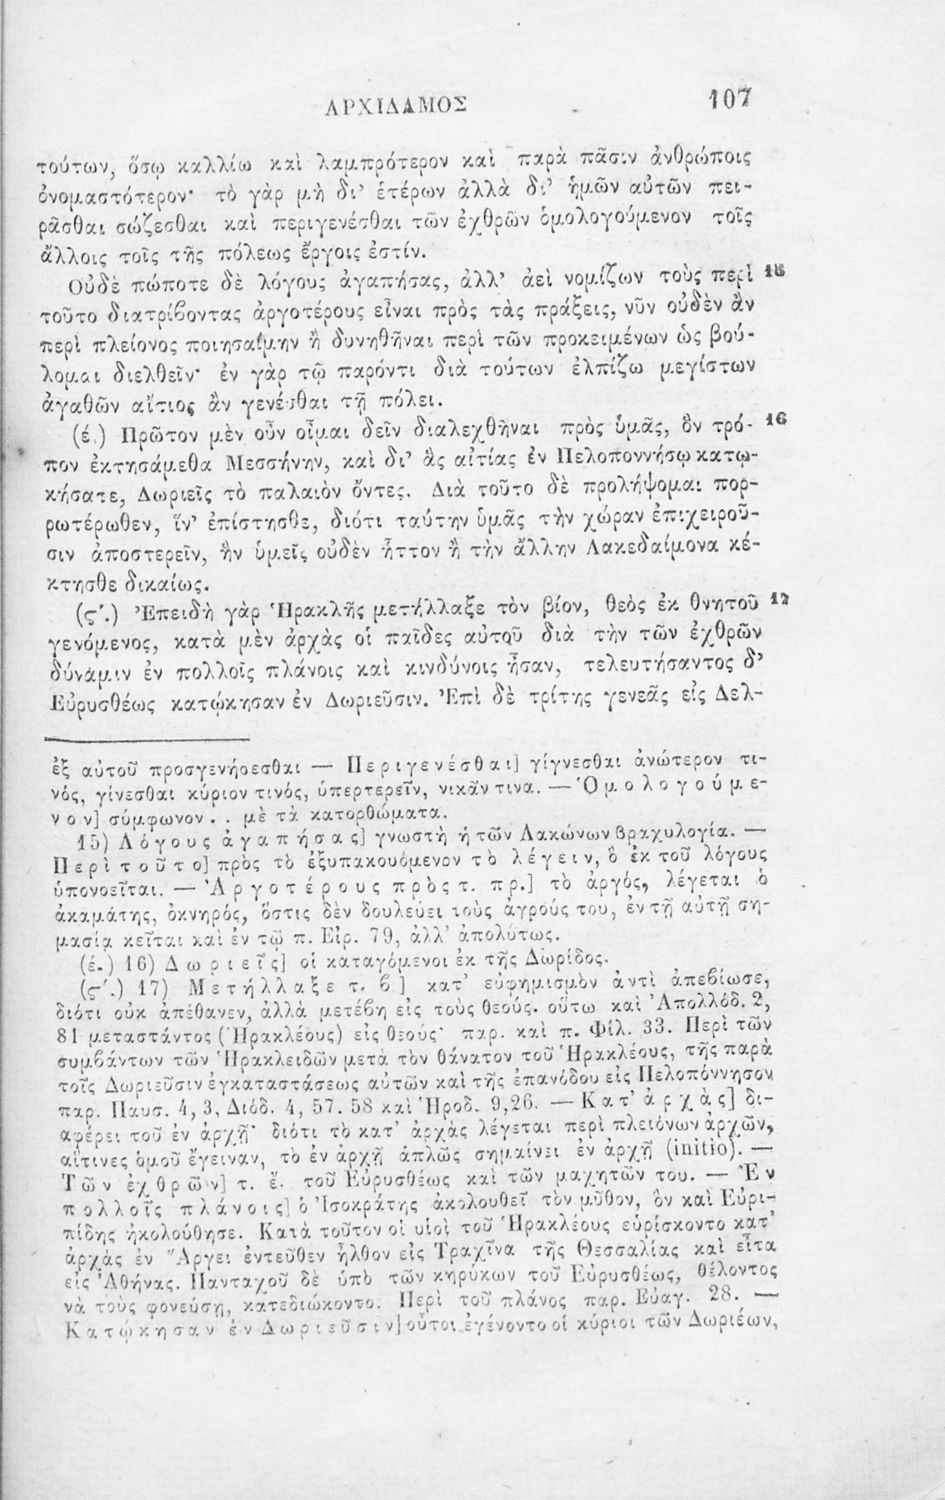 ΑΡΧΙΔΑΜΟΣ 107
τούτων, ὅσῳ καλλίω καὶ λαμπρότερον καὶ παρὰ πᾶσιν ἀνθρώποις
ὀνομαστότερον· τὸ γὰρ μὴ δι’ ἑτέρων ἀλλὰ δι’ ἡμῶν αὐτῶν πει-
ρᾶσθαι σώζεσθαι καὶ περιγενέσθαι τῶν ἐχθρῶν ὁμολογούμενον τοῖς
ἄλλοις τοῖς τῆς πόλεως ἔργοις ἐστίν.
Οὐδὲ πώποτε δὲ λόγους ἀγαπήσας, ἀλλ’ ἀεὶ νομίζων τοὺς περὶ 15
τοῦτο διατρίβοντας ἀργοτέρους εἶναι πρὸς τὰς πράξεις, νῦν οὐδὲν ἂν
περὶ πλείονος ποιησαίμην ἢ δυνηθῆναι περὶ τῶν προκειμένων ὡς βού-
λομαι διελθεῖν· ἐν γὰρ τῷ παρόντι διὰ τούτων ἐλπίζω μεγίστων
ἀγαθῶν αἴτιος ἂν γενέσθαι τῇ πόλει.
(έ.) Πρῶτον μὲν οὖν οἶμαι δεῖν διαλεχθῆναι πρὸς ὑμᾶς, ὃν τρό- 16
πον ἐκτησάμεθα Μεσσήνην, καὶ δι’ ἃς αἰτίας ἐν Πελοποννήσῳ κατῳ-
κήσατε, Δωριεῖς τὸ παλαιὸν ὄντες. Διὰ τοῦτο δὲ προλήψομαι πορ-
ρωτέρωθεν, ἵν’ ἐπίστησθε, διότι ταύτην ὑμᾶς τὴν χώραν ἐπιχειροῦ-
σιν ἀποστερεῖν, ἣν ὑμεῖς οὐδὲν ἧττον ἢ τὴν ἄλλην Λακεδαίμονα κέ-
κτησθε δικαίως.
(ϛ΄.) Ἐπειδὴ γὰρ Ἡρακλῆς μετήλλαξε τὸν βίον, θεὸς ἐκ θνητοῦ 17
γενόμενος, κατὰ μὲν ἀρχὰς οἱ παῖδες αὐτοῦ διὰ τὴν τῶν ἐχθρῶν
δύναμιν ἐν πολλοῖς πλάνοις καὶ κινδύνοις ἦσαν, τελευτήσαντος δ’
Εὐρυσθέως κατῴκησαν ἐν Δωριεῦσιν. Ἐπὶ δὲ τρίτης γενεᾶς εἰς Δελ-
ἐξ αὐτοῦ προσγενήσεσθαι — Περιγενέσθαι] γίγνεσθαι ἀνώτερον τι-
νός, γίνεσθαι κύριον τινός, ὑπερτερεῖν, νικᾶν τινα. — Ὁμολογούμε-
νον] σύμφωνον . . μὲ τὰ κατορθώματα.
15) Λόγους ἀγαπήσας] γνωστὴ ἡ τῶν Λακώνων βραχυλογία. —
Περὶ τοῦτο] πρὸς τὸ ἐξυπακουόμενον τὸ λέγειν, ὃ ἐκ τοῦ λόγους
ὑπονοεῖται. — Ἀργοτέρους πρὸς τ. πρ.] τὸ ἀργός, λέγεται ὁ
ἀκαμάτης, ὀκνηρός, ὅστις δὲν δουλεύει τοὺς ἀγρούς του, ἐν τῇ αὐτῇ ση-
μασίᾳ κεῖται καὶ ἐν τῷ π. Εἰρ. 79, ἀλλ’ ἀπολύτως.
(έ.) 16) Δωριεῖς] οἱ καταγόμενοι ἐκ τῆς Δωρίδος.
(ϛ΄.) 17) Μετήλλαξε τ. β] κατ’ εὐφημισμὸν ἀντὶ ἀπεβίωσε,
διότι οὐκ ἀπέθανεν, ἀλλὰ μετέβη εἰς τοὺς θεούς. οὕτω καὶ Ἀπολλόδ. 2,
81 μεταστάντος (Ἡρακλέους) εἰς θεούς· παρ. καὶ π. Φίλ. 33. Περὶ τῶν
συμβάντων τῶν Ἡρακλειδῶν μετὰ τὸν θάνατον τοῦ Ἡρακλέους, τῆς παρὰ
τοῖς Δωριεῦσιν ἐγκαταστάσεως αὐτῶν καὶ τῆς ἐπανόδου εἰς Πελοπόννησον
παρ. Παυσ. 4, 3, Διόδ. 4, 57. 58 καὶ Ἡροδ. 9,26. — Κατ’ ἀρχὰς] δι-
αφέρει τοῦ ἐν ἀρχῇ· διότι τὸ κατ’ ἀρχὰς λέγεται περὶ πλειόνων ἀρχῶν,
αἵτινες ὁμοῦ ἔγειναν, τὸ ἐν ἀρχῇ ἁπλῶς σημαίνει ἐν ἀρχῇ (initio). —
Τῶν ἐχθρῶν] τ. ἔ. τοῦ Εὐρυσθέως καὶ τῶν μαχητῶν του. — Ἐν
πολλοῖς πλάνοις] ὁ Ἰσοκράτης ἀκολουθεῖ τὸν μῦθον, ὃν καὶ Εὐρι-
πίδης ἠκολούθησε. Κατὰ τοῦτον οἱ υἱοὶ τοῦ Ἡρακλέους εὑρίσκοντο κατ’
ἀρχὰς ἐν Ἄργει ἐντεῦθεν ἦλθον εἰς Τραχῖνα τῆς Θεσσαλίας καὶ εἶτα
εἰς Ἀθήνας. Πανταχοῦ δὲ ὑπὸ τῶν κηρύκων τοῦ Εὐρυσθέως, θέλοντος
νὰ τοὺς φονεύσῃ, κατεδιώκοντο. Περὶ τοῦ πλάνος παρ. Εὐαγ. 28. —
Κατῴκησαν ἐν Δωριεῦσιν] οὗτοι ἐγένοντο οἱ κύριοι τῶν Δωριέων,